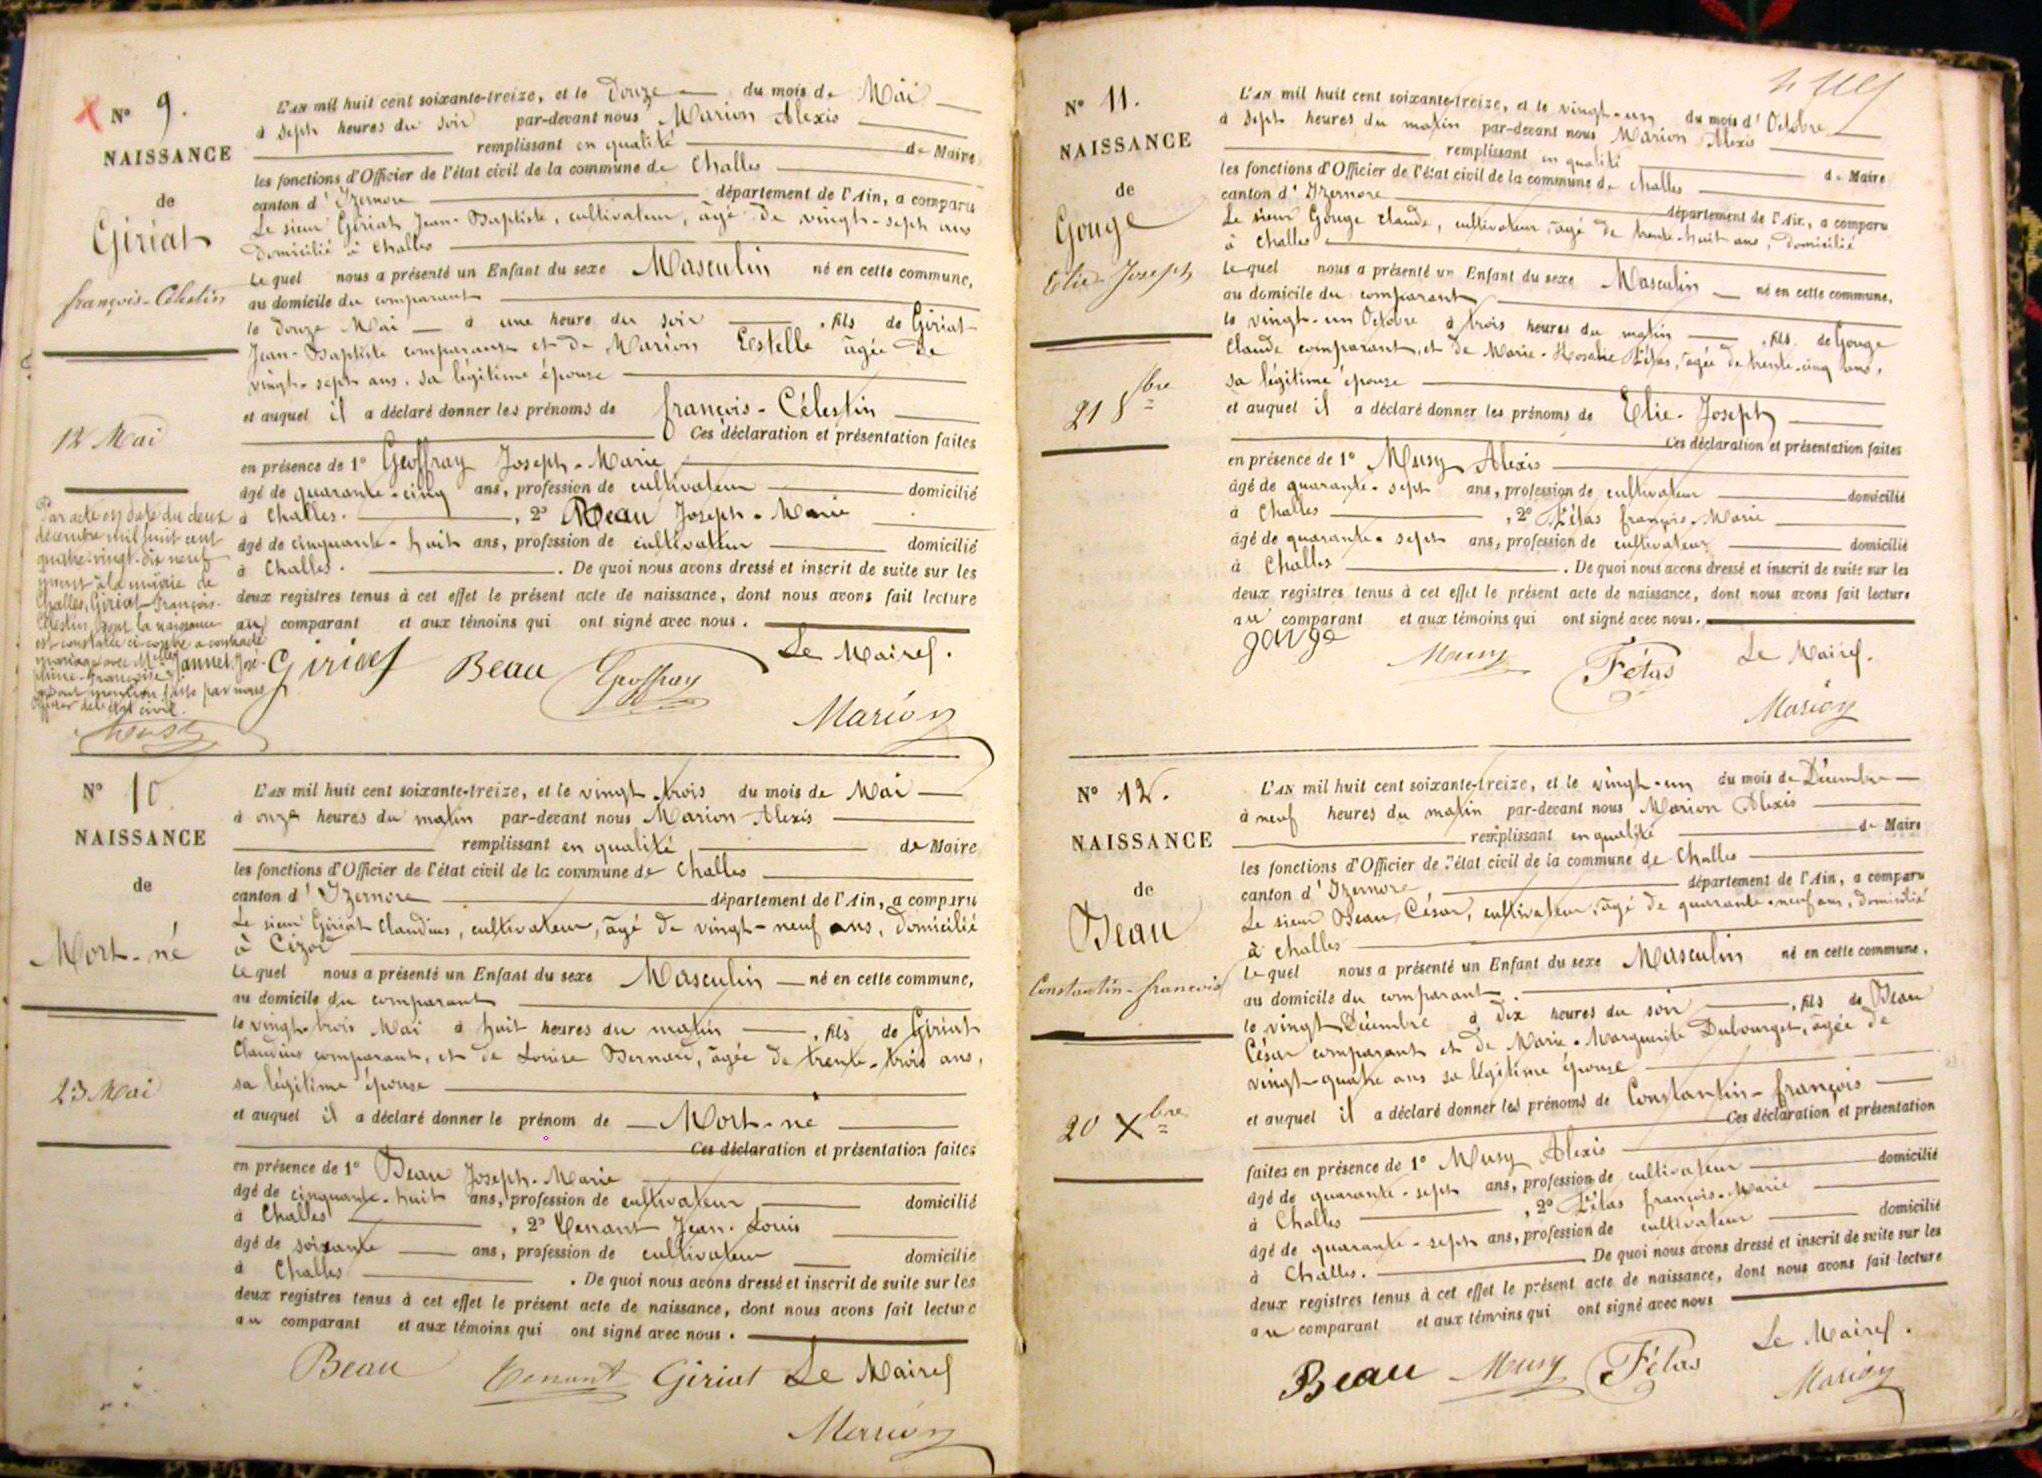 N° 9.
NAISSANCE
de
Giriat
françois-Célestin
12 Mai
Par acte en date du deux
décembre mil huit cent
quatre-vingt-dix neuf
passé à la mairie de
Challes, Giriat François-
Célestin dont la naissance
est constatée ci-contre a contracté
mariage avec Mlle Jannet José-
phine-Françoise
dont mention faite par nous
officier de l'état civil.
L'AN mil huit cent soixante-treize, et le Douze du mois de Mai
à sept heures du soir par-devant nous Marion Alexis
remplissant en qualité de Maire
les fonctions d'Officier de l'état civil de la commune de Challes
canton d'Izernore département de l'Ain, a comparu
Le sieur Giriat Jean-Baptiste, cultivateur, âgé de vingt-sept ans
Domicilié à Challes
Lequel nous a présenté un Enfant du sexe Masculin né en cette commune,
au domicile du comparant
le douze Mai à une heure du soir, fils de Giriat
Jean-Baptiste comparant et de Marion Estelle âgée de
vingt-sept ans, sa légitime épouse
et auquel il a déclaré donner les prénoms de françois-Célestin
Ces déclaration et présentation faites
en présence de 1° Geoffray Joseph-Marie
âgé de quarante-cinq ans, profession de cultivateur domicilié
à Challes. , 2° Beau Joseph-Marie
âgé de cinquante-huit ans, profession de cultivateur domicilié
à Challes. . De quoi nous avons dressé et inscrit de suite sur les
deux registres tenus à cet effet le présent acte de naissance, dont nous avons fait lecture
au comparant et aux témoins qui ont signé avec nous.
Giriat Beau Geoffray Le Maire.
Marion
N° 10
NAISSANCE
de
Mort-né
23 Mai
L'AN mil huit cent soixante-treize, et le vingt-trois du mois de Mai
à onze heures du matin par-devant nous Marion Alexis
remplissant en qualité de Maire
les fonctions d'Officier de l'état civil de la commune de Challes
canton d'Izernore département de l'Ain, a comparu
Le sieur Giriat Claudius, cultivateur, âgé de vingt-neuf ans, domicilié
à Cize
Lequel nous a présenté un Enfant du sexe Masculin né en cette commune,
au domicile du comparant
le vingt-trois Mai à huit heures du matin, fils de Giriat
Claudius comparant, et de Louise Bernard, âgée de trente-trois ans,
sa légitime épouse
et auquel il a déclaré donner le prénom de Mort-né
Ces déclaration et présentation faites
en présence de 1° Beau Joseph-Marie
âgé de cinquante-huit ans, profession de cultivateur domicilié
à Challes , 2° Tenant Jean-Louis
âgé de soixante ans, profession de cultivateur domicilié
à Challes . De quoi nous avons dressé et inscrit de suite sur les
deux registres tenus à cet effet le présent acte de naissance, dont nous avons fait lecture
au comparant et aux témoins qui ont signé avec nous.
Beau Tenant Giriat Le Maire
Marion
N° 11.
NAISSANCE
de
Gouge
Elie-Joseph
21 8bre
L'AN mil huit cent soixante-treize, et le vingt-un du mois d'Octobre
à sept heures du matin par-devant nous Marion Alexis
remplissant en qualité de Maire
les fonctions d'Officier de l'état civil de la commune de Challes
canton d'Izernore département de l'Ain, a comparu
Le sieur Gouge Claude, cultivateur, âgé de trente-huit ans, domicilié
à Challes
Lequel nous a présenté un Enfant du sexe Masculin né en cette commune,
au domicile du comparant
le vingt-un Octobre à trois heures du matin, fils de Gouge
Claude comparant, et de Marie-Rosalie Fétas, âgée de trente-cinq ans,
sa légitime épouse
et auquel il a déclaré donner les prénoms de Elie-Joseph
Ces déclaration et présentation faites
en présence de 1° Musy Alexis
âgé de quarante-sept ans, profession de cultivateur domicilié
à Challes , 2° Fétas françois-Marie
âgé de quarante-sept ans, profession de cultivateur domicilié
à Challes . De quoi nous avons dressé et inscrit de suite sur les
deux registres tenus à cet effet le présent acte de naissance, dont nous avons fait lecture
au comparant et aux témoins qui ont signé avec nous.
gouge Musy Fétas Le Maire.
Marion
N° 12.
NAISSANCE
de
Beau
Constantin-francois
20 Xbre
L'AN mil huit cent soixante-treize, et le vingt-un du mois de Décembre
à neuf heures du matin par-devant nous Marion Alexis
remplissant en qualité de Maire
les fonctions d'Officier de l'état civil de la commune de Challes
canton d'Izernore département de l'Ain, a comparu
Le sieur Beau César, cultivateur, âgé de quarante-neuf ans, domicilié
à Challes
Lequel nous a présenté un Enfant du sexe Masculin né en cette commune,
au domicile du comparant.
le vingt Décembre à dix heures du soir, fils de Beau
César comparant et de Marie-Marguerite Dubourget, âgée de
vingt-quatre ans sa légitime épouse
et auquel il a déclaré donner les prénoms de Constantin-françois
Ces déclaration et présentation
faites en présence de 1° Musy Alexis
âgé de quarante-sept ans, profession de cultivateur domicilié
à Challes , 2° Fétas françois-Marie
âgé de quarante-sept ans, profession de cultivateur domicilié
à Challes. De quoi nous avons dressé et inscrit de suite sur les
deux registres tenus à cet effet le présent acte de naissance, dont nous avons fait lecture
au comparant et aux témoins qui ont signé avec nous
Beau Musy Fétas Le Maire.
Marion